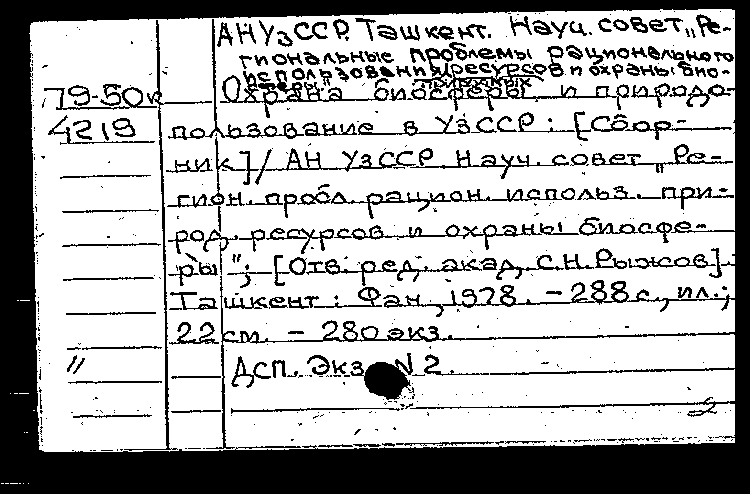 АН УзССР. Ташкент. Науч. совет „Ре-
гиональные проблемы рационального
использования природных ресурсов и охраны био-
сферы"
79-50к Охрана биосферы и природо-
4219 пользование в УзССР : [Сбор-
ник] / АН УзССР. Науч. совет „Ре-
гион. пробл. рацион. использ. при-
род. ресурсов и охраны биосфе-
ры" ; [Отв. ред. акад. С.Н. Рыжов].
Ташкент : Фан, 1978. – 288 с., ил.;
22 см. – 280 экз.
" ДСП. Экз. N 2.
2